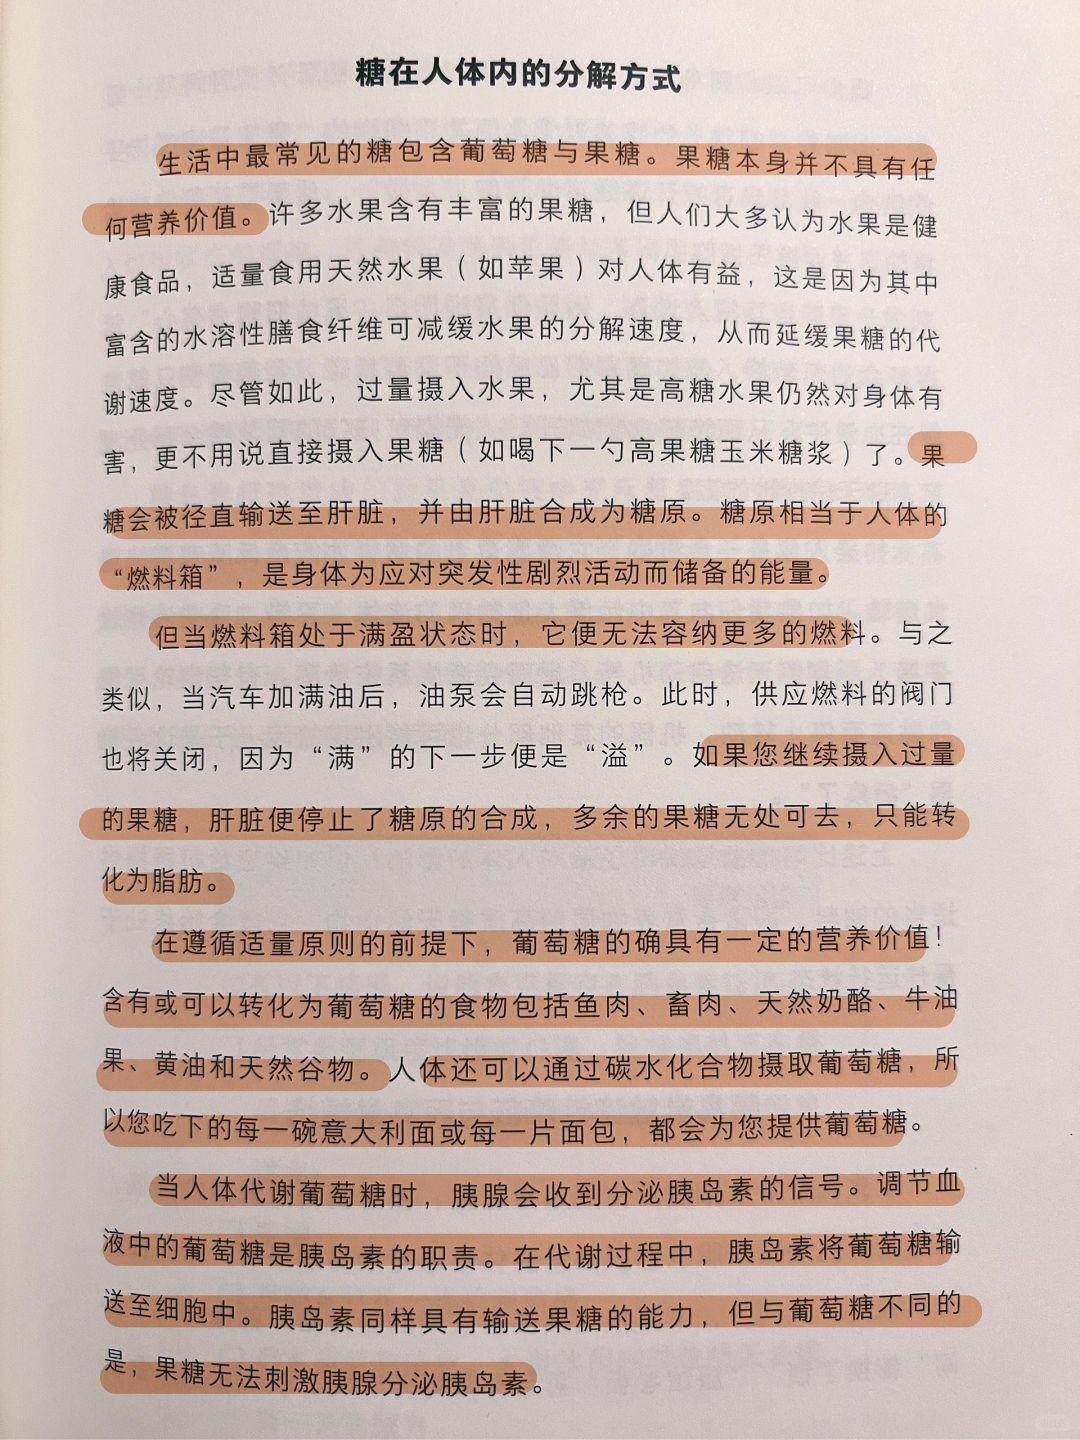 糖在人体内的分解方式
生活中最常见的糖包含葡萄糖与果糖。果糖本身并不具有任
何营养价值。许多水果含有丰富的果糖，但人们大多认为水果是健
康食品，适量食用天然水果（如苹果）对人体有益，这是因为其中
富含的水溶性膳食纤维可减缓水果的分解速度，从而延缓果糖的代
谢速度。尽管如此，过量摄入水果，尤其是高糖水果仍然对身体有
害，更不用说直接摄入果糖（如喝下一勺高果糖玉米糖浆）了。果
糖会被径直输送至肝脏，并由肝脏合成为糖原。糖原相当于人体的
“燃料箱”，是身体为应对突发性剧烈活动而储备的能量。
但当燃料箱处于满盈状态时，它便无法容纳更多的燃料。与之
类似，当汽车加满油后，油泵会自动跳枪。此时，供应燃料的阀门
也将关闭，因为“满”的下一步便是“溢”。如果您继续摄入过量
的果糖，肝脏便停止了糖原的合成，多余的果糖无处可去，只能转
化为脂肪。
在遵循适量原则的前提下，葡萄糖的确具有一定的营养价值！
含有或可以转化为葡萄糖的食物包括鱼肉、畜肉、天然奶酪、牛油
果、黄油和天然谷物。人体还可以通过碳水化合物摄取葡萄糖，所
以您吃下的每一碗意大利面或每一片面包，都会为您提供葡萄糖。
当人体代谢葡萄糖时，胰腺会收到分泌胰岛素的信号。调节血
液中的葡萄糖是胰岛素的职责。在代谢过程中，胰岛素将葡萄糖输
送至细胞中。胰岛素同样具有输送果糖的能力，但与葡萄糖不同的
是，果糖无法刺激胰腺分泌胰岛素。